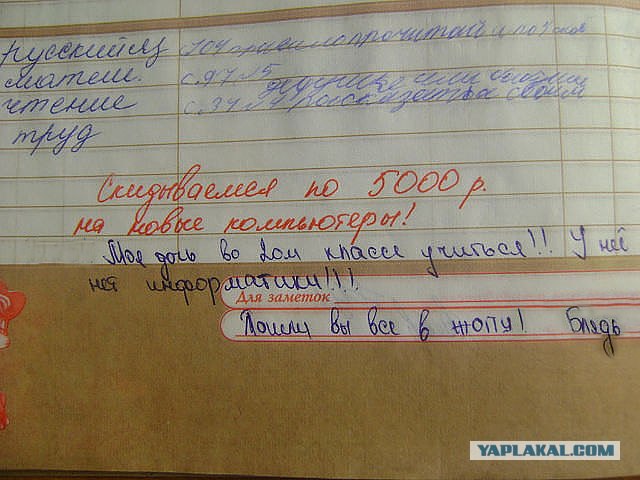 русский яз 104 правило прочитать и
матем. с. 97 №5
чтение с. 94 №4 рассказать о своём
труд
Скидываемся по 5000 р.
на новые компьютеры!
Моя дочь во 2ом классе учиться!! У неё
нет информатики!!!
Для заметок
Пошли вы все в жопу! Блядь
YAPLAKAL.COM